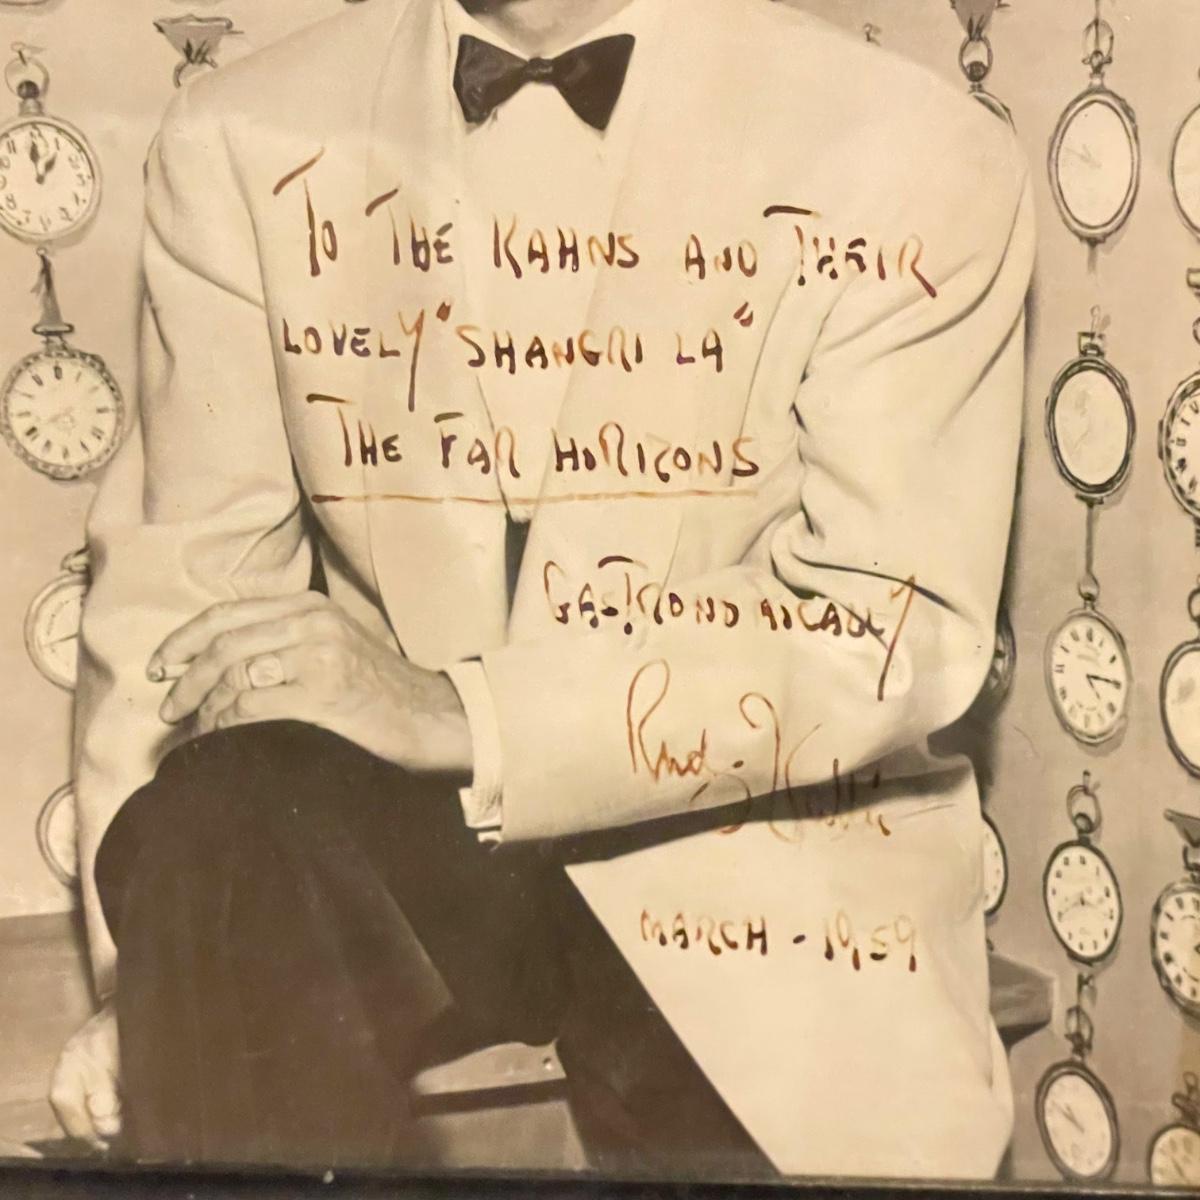 TO THE KAHNS AND THEIR
LOVELY "SHANGRI LA"
THE FAR HORIZONS
GASTRONOMICALLY
Rudy
MARCH - 1959